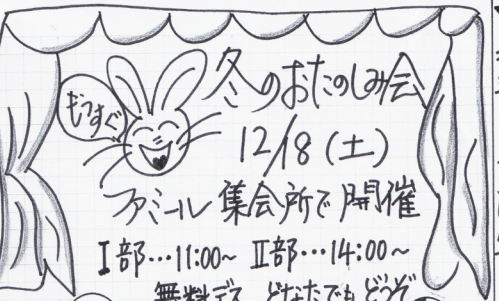 もうすぐ
冬のおたのしみ会
12/18(土)
ファミール集会所で開催
I部…11:00~ II部…14:00~
無料デス どなたでもどうぞ